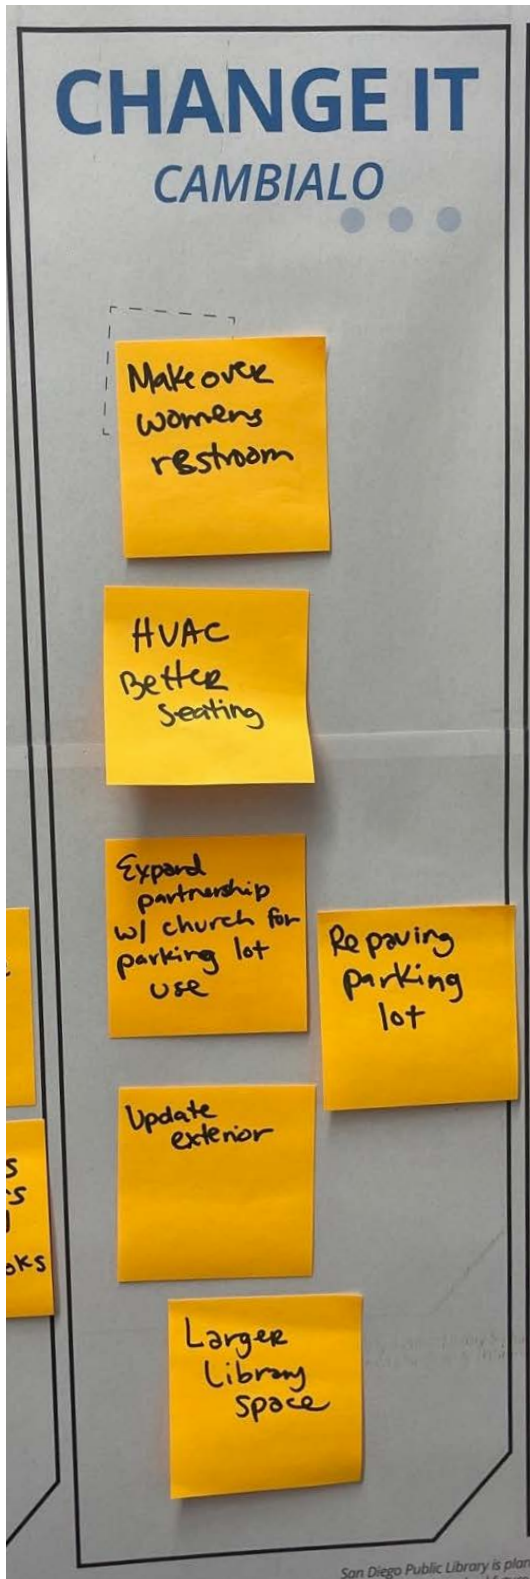 CHANGE IT
CAMBIALO
Makeover
womens
restroom
HVAC
Better
seating
Expand
partnership
w/ church for
parking lot
use
Repaving
parking
lot
Update
exterior
Larger
Library
space
oks
San Diego Public Library is plan